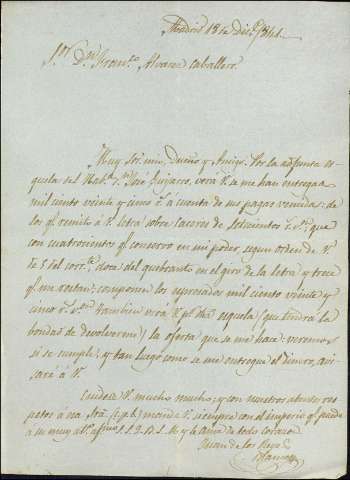 Madrid 13 de Dic.e
S.or D.n Fran.co Alvarez Caballero.
Muy Sor. mio, Dueño y Amigo. Por la adjunta es-
quela del Hab.do D.n José Guijarro, verá V. se me han entregado
mil ciento veinte y cinco r.s á cuenta de sus pagas vencidas: de
los q.e remito á V. letra sobre Caceres de setecientos r.s v.n, que
con cuatrocientos q.e conservo en mi poder, segun orden de V.
de 5 del corr.te, doce del quebranto en el giro de la letra y trece
q.e me restan; componen los espresados mil ciento veinte y
cinco r.s v.n Tambien verá V. p.r dha esquela (que tendrá la
bondad de devolverme) la oferta que se me hace: veremos
si se cumple; y tan luego como se me entregue el dinero, avi-
saré á V.
Cuidese V. mucho, mucho; y con nuestros afectos res-
petos á esa Sra. (c.p.b.) mande V. siempre con el imperio q.e puede
á su muy af.mo S.S.Q.B.S.M. y le ama de todo corazon
Juan de los Reyes